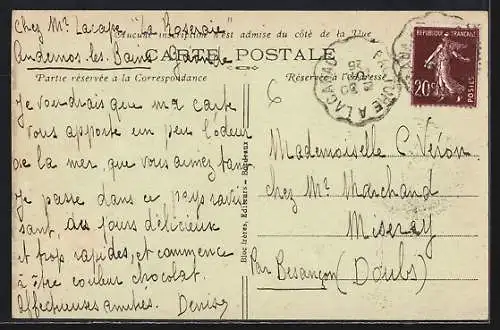 Chez Mr Lacape "La Roseraie"
Aucune inscription n'est admise du côté de la Vue
Andernos-les-Bains Gironde
CARTE POSTALE
Partie réservée à la Correspondance
Réservée à l'Adresse
REPUBLIQUE FRANÇAISE
20c
POSTES
FACTURE A LACANAU
Je voudrais que ma carte
vous apporte un peu l'odeur
de la mer que vous aimez tant.
Je passe dans ce pays ravis-
sant des jours délicieux
et trop rapides, et commence
à être couleur chocolat.
Affectueuses amitiés. Denise
Bloc frères, Editeurs - Bordeaux
6
Mademoiselle C. Véron
chez Mr Marchand
Miserey
Par Besançon (Doubs)